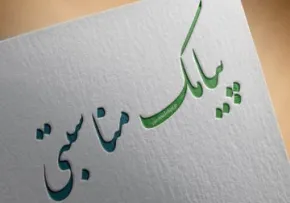 پیامک مناسبتی